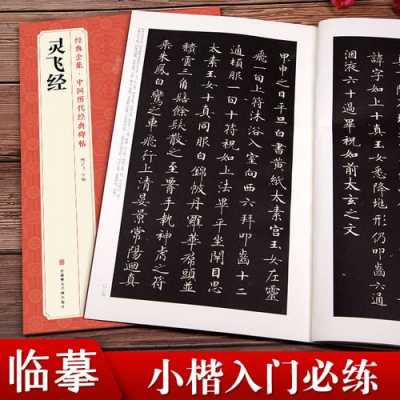 灵飞经
中国历代经典碑帖
諱字如上十真玉女悉降地形仍叩齒六通
咽液六十過畢祝如前太玄之文
甲申之日平旦白書黄紙太素宫玉女左靈
飛一旬上符沐浴入室向西六拜叩齒十二
通頓服一旬十符祝如上法畢平坐閉目思
太素玉女十真同服白錦帔丹羅華帬頭並
頽雲三角髻餘髮散之至腰手執神虎之符
乘朱鳳白鸞之車飛行上清晏景常陽迴真
临摹
小楷入门必练